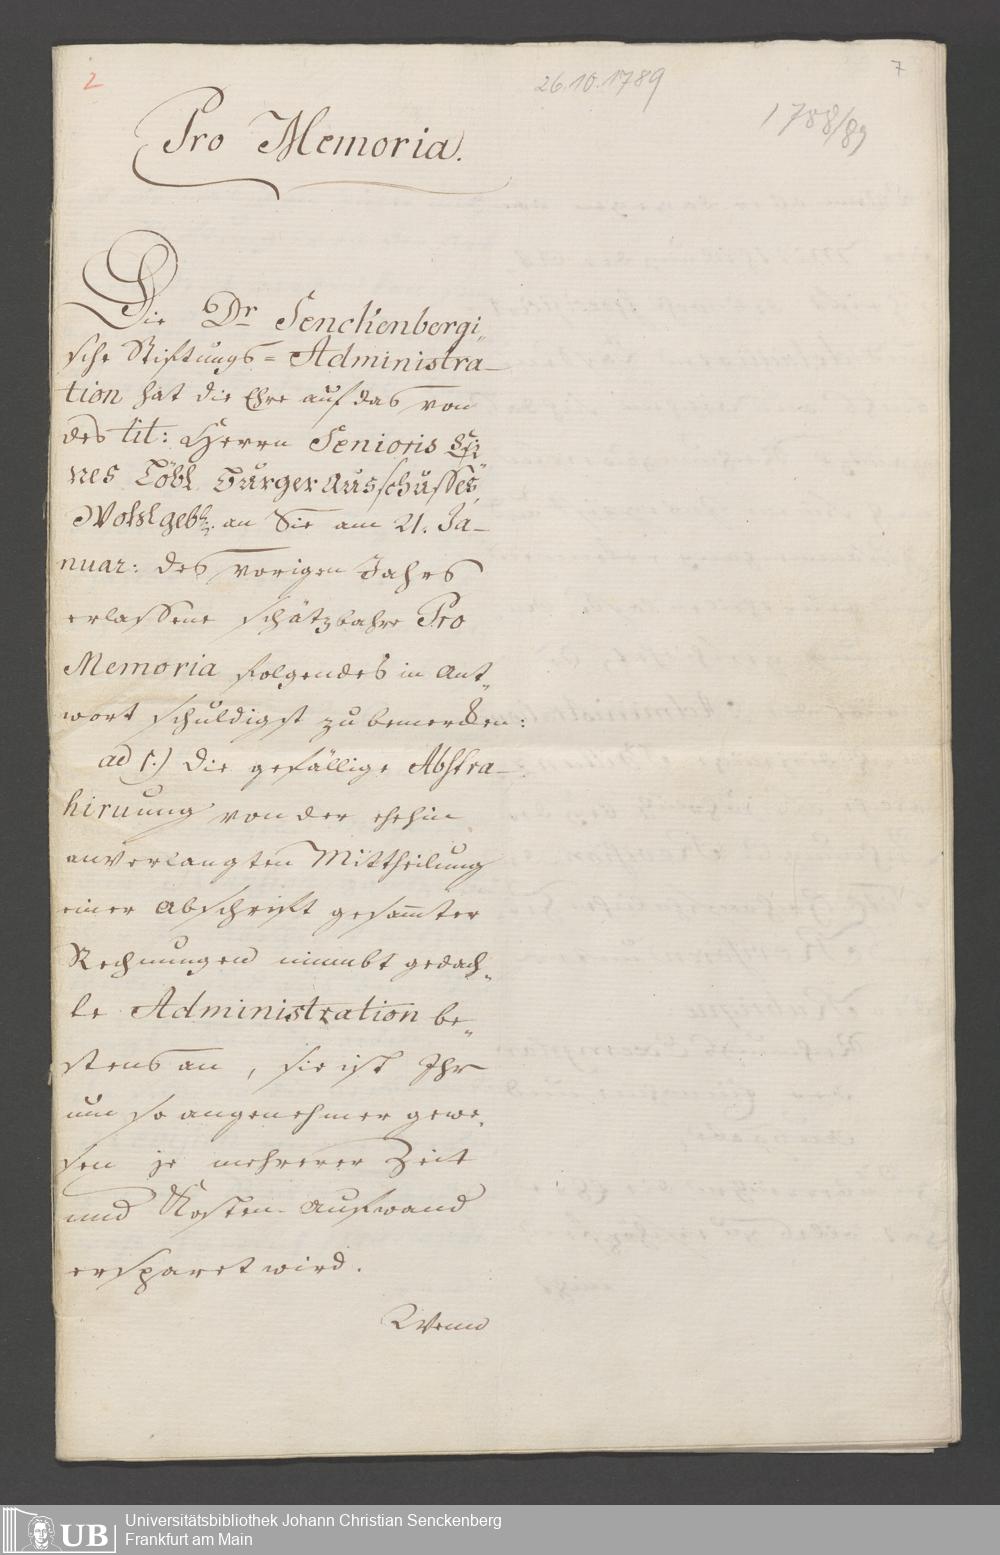 2
26.10.1789
7
1788/89
Pro Memoria.
Die Dr Senckenbergi„
sche Stiftungs= Administra-
tion hat die Ehre auf das von
des tit: Herrn Senioris Ei
nes Löbl. Burger Ausschusses,
Wohlgeb. an Sie am 21. Ja-
nuar: des vorigen Jahrs
erlassene schätzbahre Pro
Memoria folgendes in Ant„
wort schuldigst zu bemercken:
ad 1.) Die gefällige Abstra-
hiruung von der ehehin
anverlangten Mittheilung
einer Abschrift gesam̄ter
Rechnungen nimbt gedach„
te Administration be„
stens an, sie ist Ihr
um so angenehmer gewe„
sen je mehrerer Zeit
und Kosten-Aufwand
ersparet wird.
Wenn
UB
Universitätsbibliothek Johann Christian Senckenberg
Frankfurt am Main